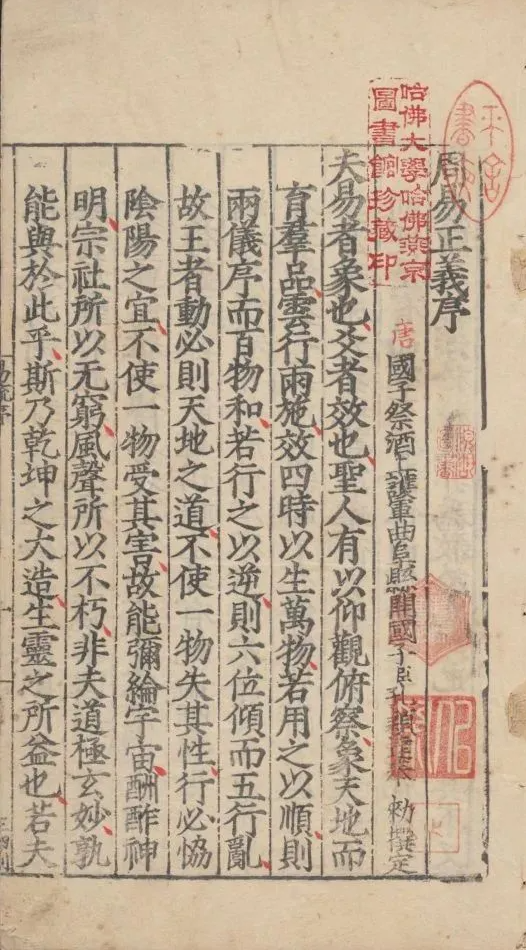 周易正義序
唐國子祭酒上護軍曲阜縣開國子臣孔穎達奉勅撰定
夫易者象也爻者效也聖人有以仰觀俯察象天地而
育羣品雲行雨施效四時以生萬物若用之以順則
兩儀序而百物和若行之以逆則六位傾而五行亂
故王者動必則天地之道不使一物失其性行必協
陰陽之宜不使一物受其害故能彌綸宇宙酬酢神
明宗社所以无窮風聲所以不朽非夫道極玄妙孰
能與於此乎斯乃乾坤之大造生靈之所益也若夫
哈佛大學哈佛燕京
圖書館珍藏印
易疏序